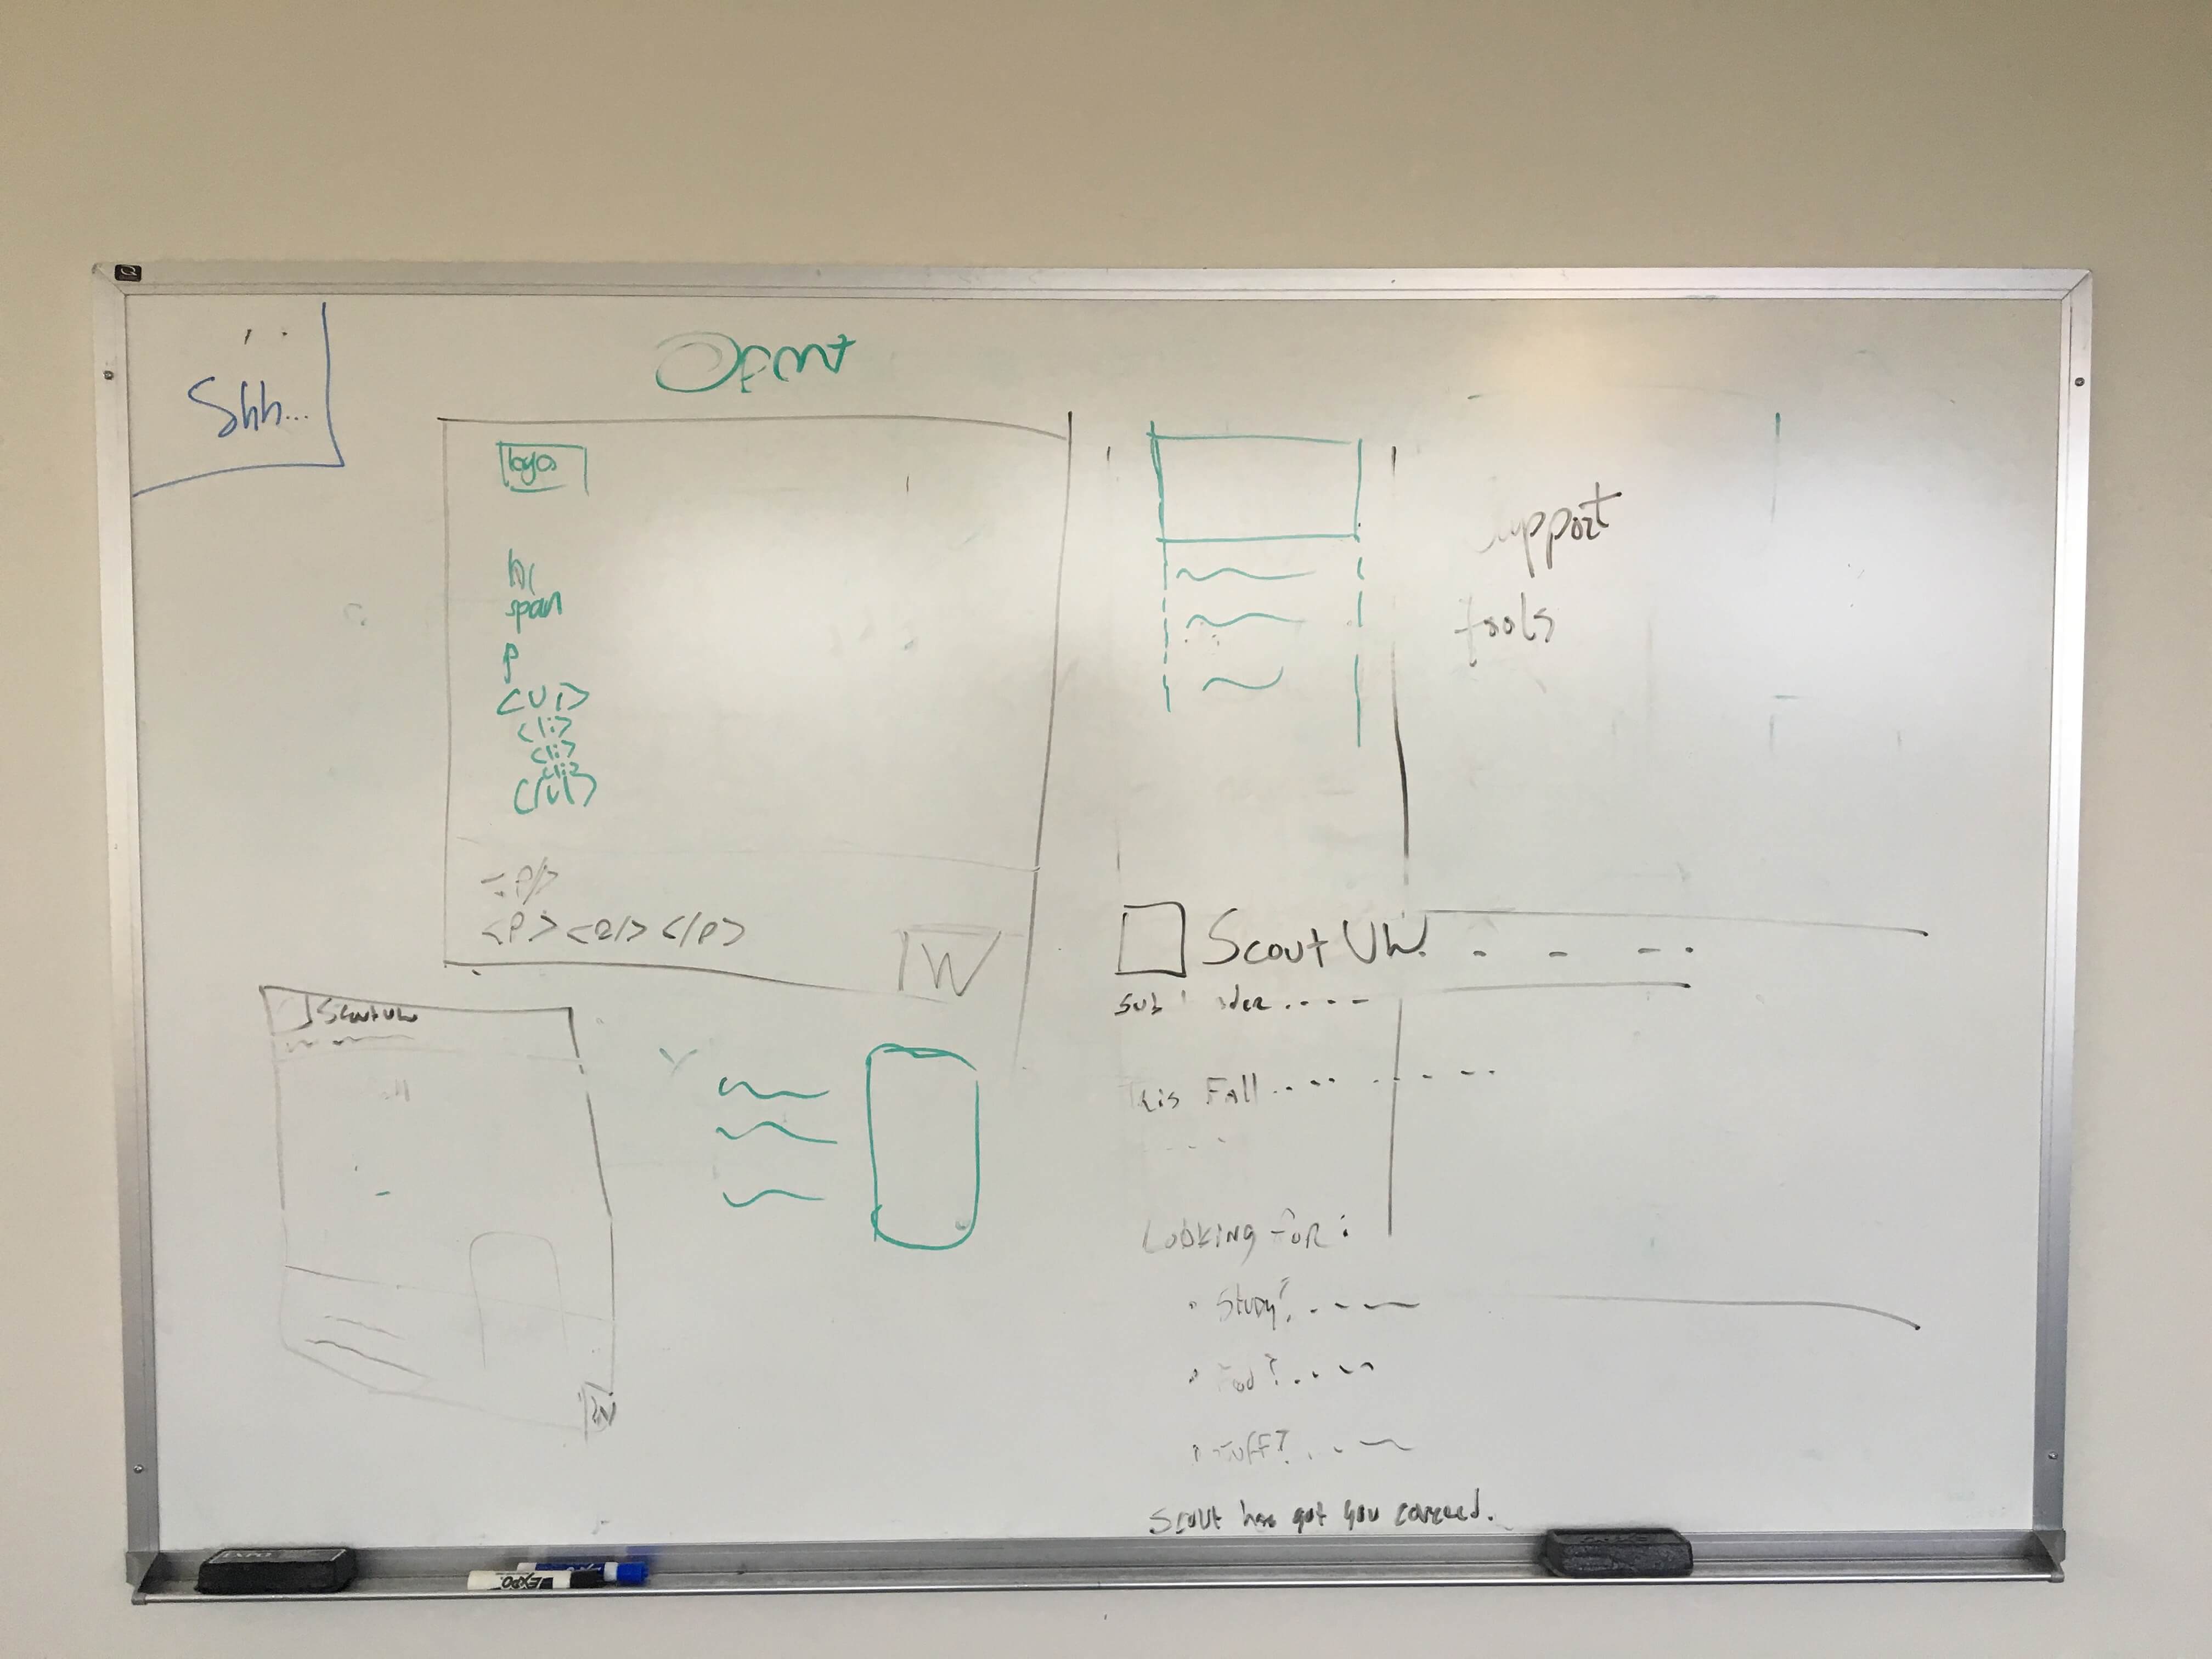 Shh...
logo
span
p
<ul>
<li>
<li>
<li>
</ul>
<p/>
<p><a/></p>
W
Scout UW
support
tools
Scout UW
This Fall ....
Looking for:
• Study? . - - -
• Food? . . - -
• Stuff? . . - -
Scout has got you covered.
EXPO